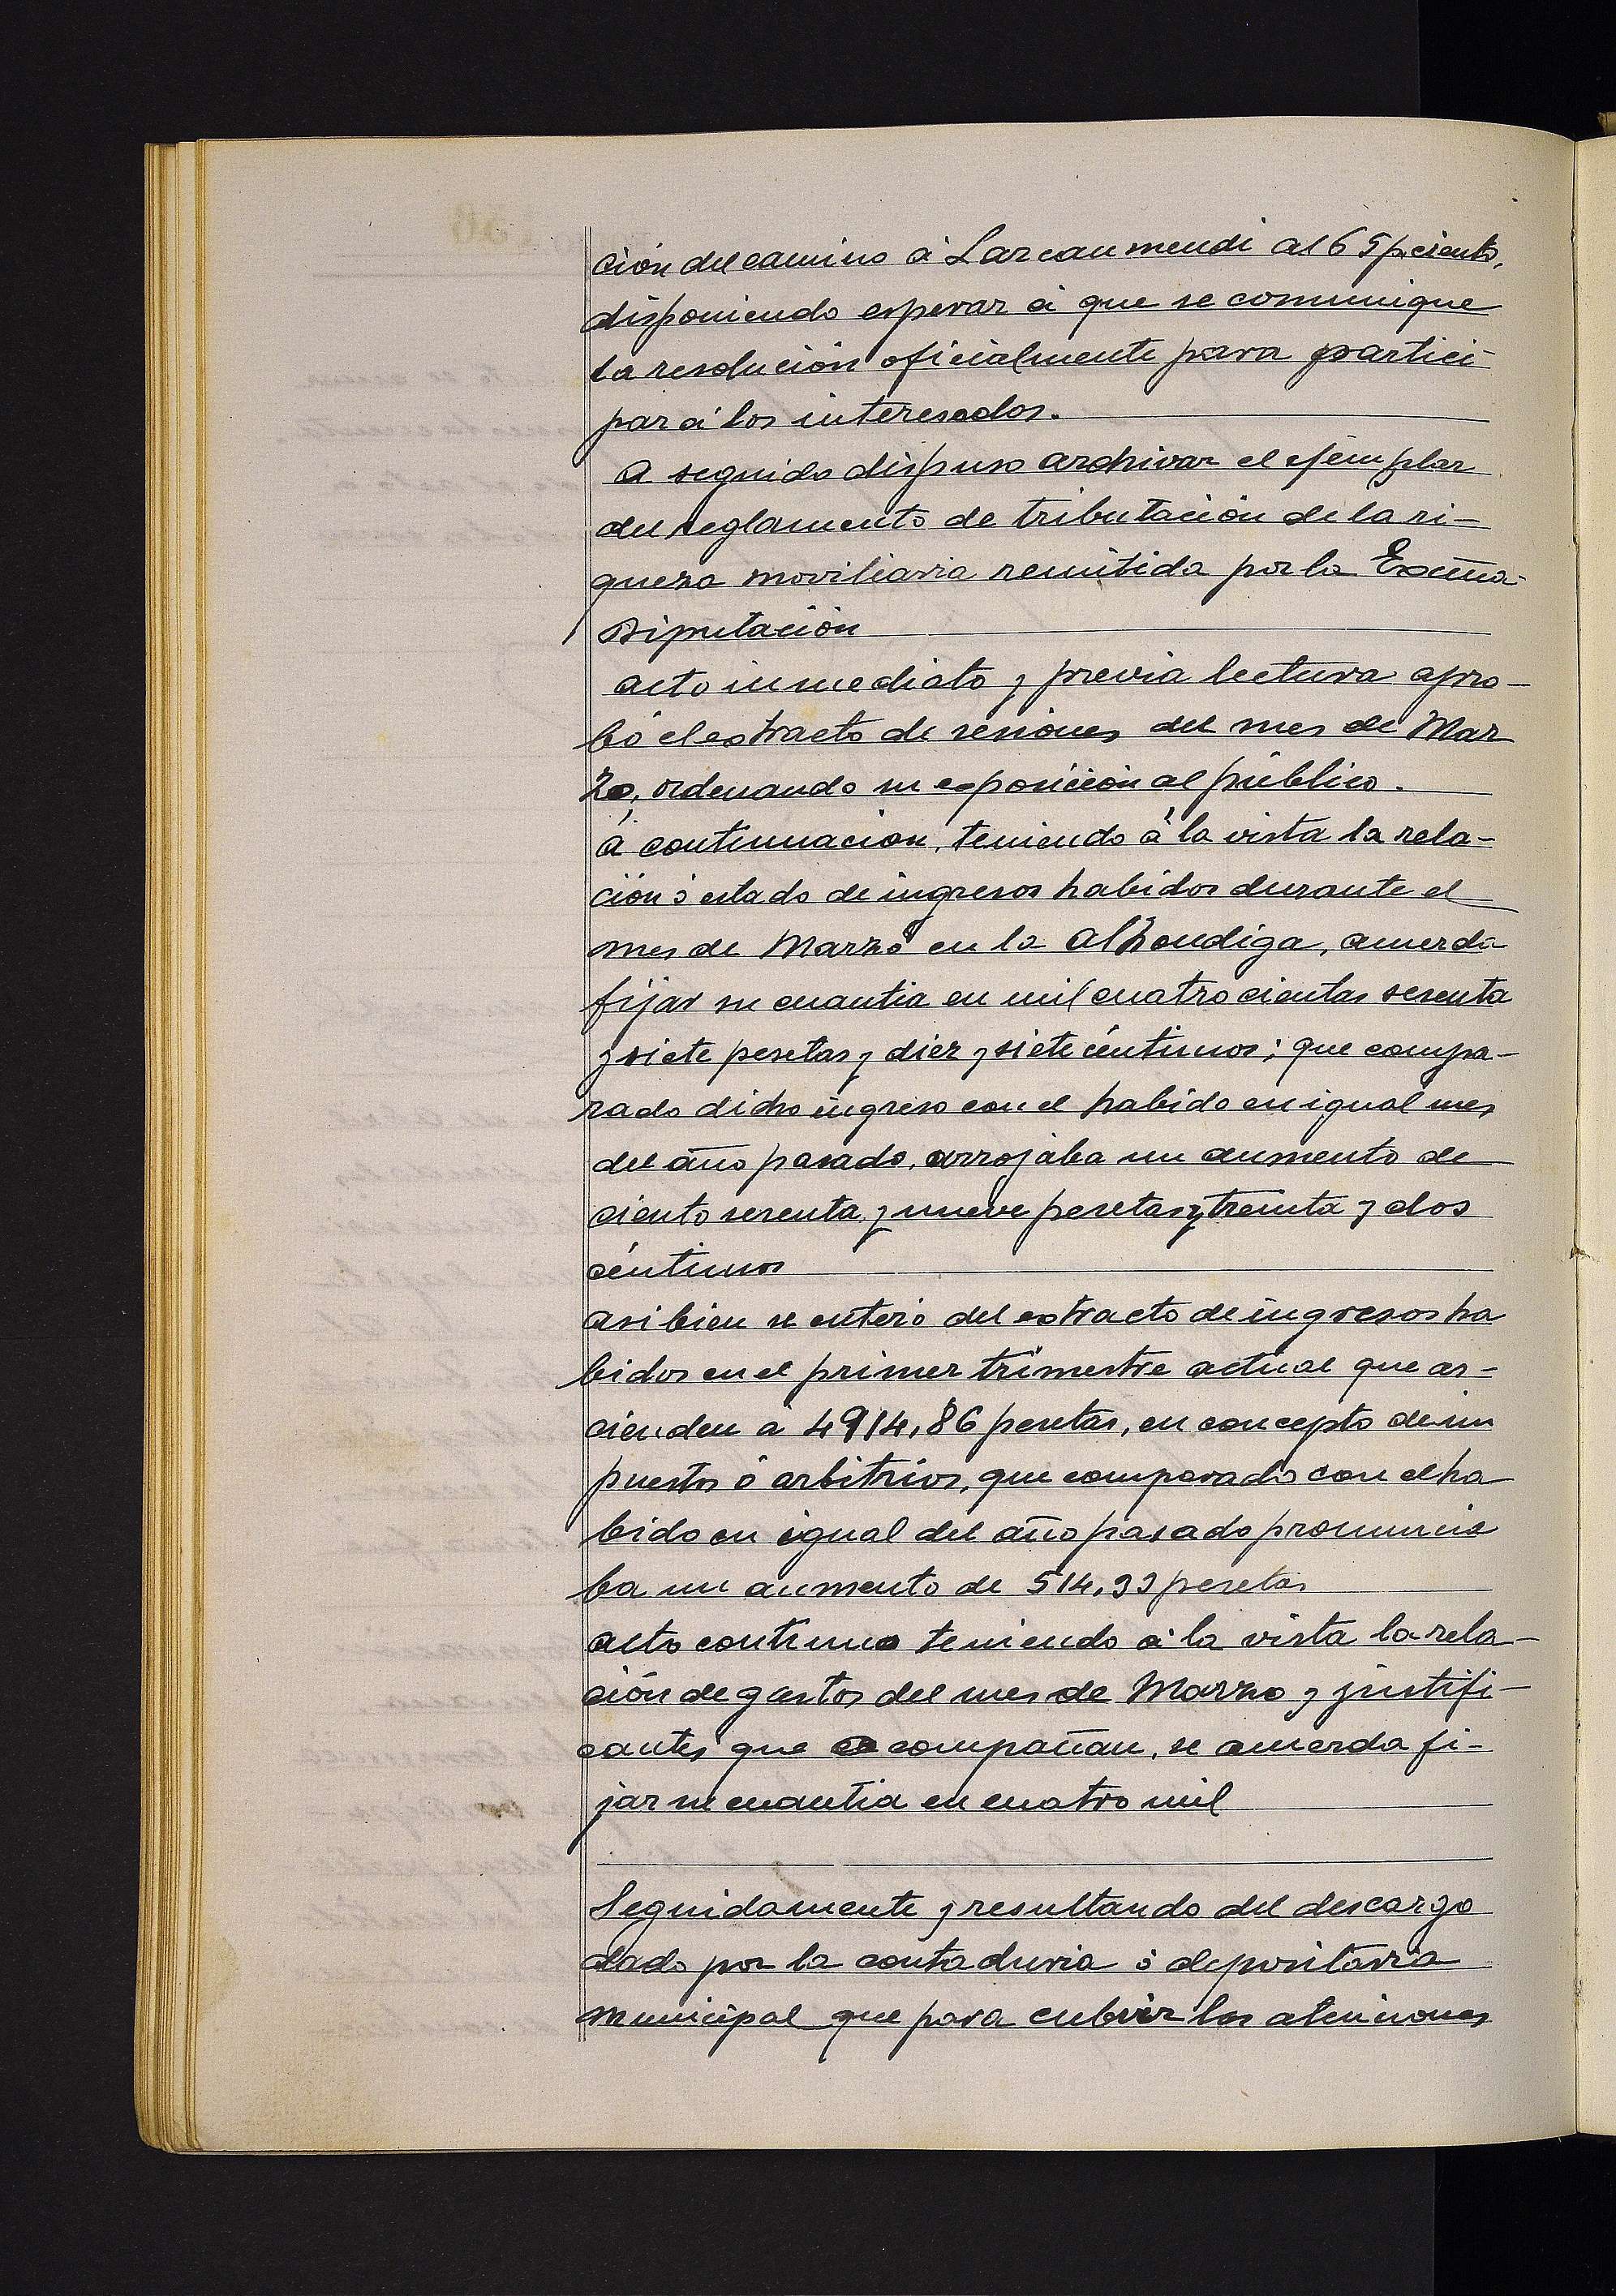 ción del camino á Larcaumendi al 65 p.ciento,
disponiendo esperar á que se comunique
la resolución oficialmente para partici-
par á los interesados.
A seguida dispuso archivar el ejemplar
del reglamento de tributación de la ri-
queza moviliaria remitida por la Excma.
Diputación
acto inmediato y previa lectura apro-
bó el extracto de sesiones del mes de Mar
zo, ordenando su exposición al público.
á continuación, teniendo á la vista la rela-
ción ó estado de ingresos habidos durante el
mes de Marzo en la Alhondiga, acuerda
fijar su cuantia en mil cuatrocientas sesenta
y siete pesetas y diez y siete céntimos; que compa-
rado dicho ingreso con el habido en igual mes
del año pasado, arrojaba un aumento de
ciento sesenta y nueve pesetas y treinta y dos
céntimos
asi bien se enteró del extracto de ingresos ha
bidos en el primer trimestre actual que as-
cienden á 4914,86 pesetas, en concepto de im
puestos ó arbitrios, que comparado con el ha
bido en igual del año pasado pronuncia
ba un aumento de 514,93 pesetas
acto continuo teniendo á la vista la rela-
ción de gastos del mes de Marzo y justifi-
cantes que acompañan, se acuerda fi-
jar su cuantia en cuatro mil
Seguidamente y resultando del descargo
dado por la contaduria ó depositaria
municipal que para cubrir las atenciones